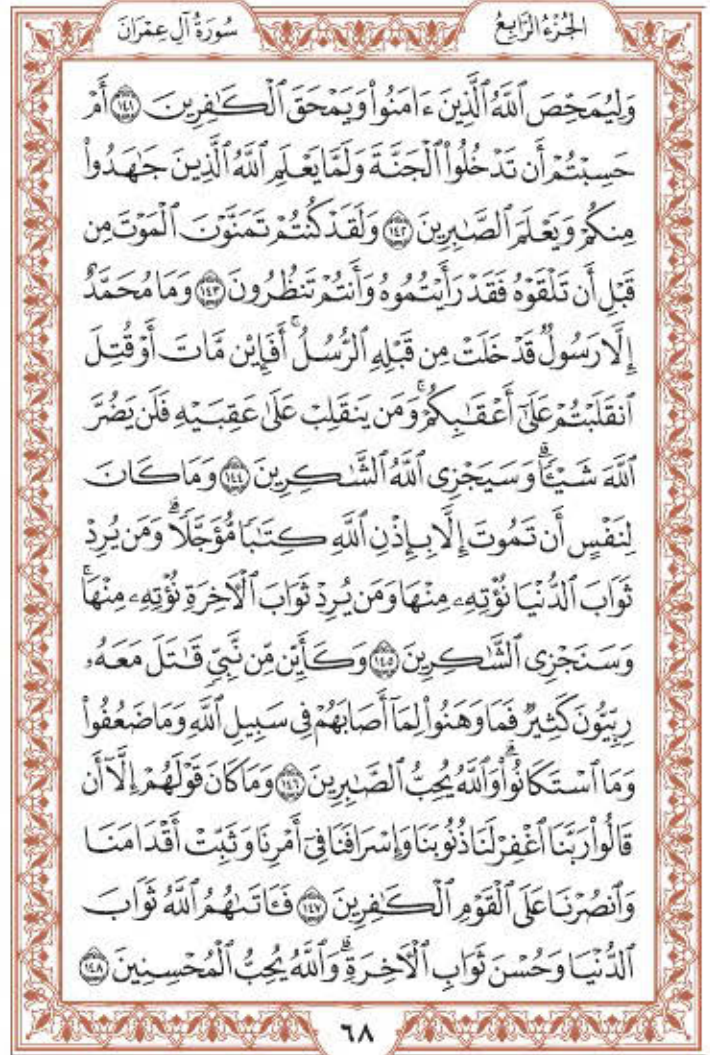 الجُزْءُ الرَّابِعُ سُورَةُ آلِ عِمْرَانَ
وَلِيُمَحِّصَ ٱللَّهُ ٱلَّذِينَ ءَامَنُواْ وَيَمْحَقَ ٱلْكَٰفِرِينَ ١٤١ أَمْ
حَسِبْتُمْ أَن تَدْخُلُواْ ٱلْجَنَّةَ وَلَمَّا يَعْلَمِ ٱللَّهُ ٱلَّذِينَ جَٰهَدُواْ
مِنكُمْ وَيَعْلَمَ ٱلصَّٰبِرِينَ ١٤٢ وَلَقَدْ كُنتُمْ تَمَنَّوْنَ ٱلْمَوْتَ مِن
قَبْلِ أَن تَلْقَوْهُ فَقَدْ رَأَيْتُمُوهُ وَأَنتُمْ تَنظُرُونَ ١٤٣ وَمَا مُحَمَّدٌ
إِلَّا رَسُولٌ قَدْ خَلَتْ مِن قَبْلِهِ ٱلرُّسُلُ ۚ أَفَإِيْن مَّاتَ أَوْ قُتِلَ
ٱنقَلَبْتُمْ عَلَىٰٓ أَعْقَٰبِكُمْ ۚ وَمَن يَنقَلِبْ عَلَىٰ عَقِبَيْهِ فَلَن يَضُرَّ
ٱللَّهَ شَيْـًٔا ۗ وَسَيَجْزِى ٱللَّهُ ٱلشَّٰكِرِينَ ١٤٤ وَمَا كَانَ
لِنَفْسٍ أَن تَمُوتَ إِلَّا بِإِذْنِ ٱللَّهِ كِتَٰبًا مُّؤَجَّلًا ۗ وَمَن يُرِدْ
ثَوَابَ ٱلدُّنْيَا نُؤْتِهِۦ مِنْهَا وَمَن يُرِدْ ثَوَابَ ٱلْـَٔاخِرَةِ نُؤْتِهِۦ مِنْهَا ۚ
وَسَنَجْزِى ٱلشَّٰكِرِينَ ١٤٥ وَكَأَيِّن مِّن نَّبِىٍّ قَٰتَلَ مَعَهُۥ
رِبِّيُّونَ كَثِيرٌ فَمَا وَهَنُواْ لِمَآ أَصَابَهُمْ فِى سَبِيلِ ٱللَّهِ وَمَا ضَعُفُواْ
وَمَا ٱسْتَكَانُواْ ۗ وَٱللَّهُ يُحِبُّ ٱلصَّٰبِرِينَ ١٤٦ وَمَا كَانَ قَوْلَهُمْ إِلَّآ أَن
قَالُواْ رَبَّنَا ٱغْفِرْ لَنَا ذُنُوبَنَا وَإِسْرَافَنَا فِىٓ أَمْرِنَا وَثَبِّتْ أَقْدَامَنَا
وَٱنصُرْنَا عَلَى ٱلْقَوْمِ ٱلْكَٰفِرِينَ ١٤٧ فَـَٔاتَىٰهُمُ ٱللَّهُ ثَوَابَ
ٱلدُّنْيَا وَحُسْنَ ثَوَابِ ٱلْـَٔاخِرَةِ ۗ وَٱللَّهُ يُحِبُّ ٱلْمُحْسِنِينَ ١٤٨
٦٨